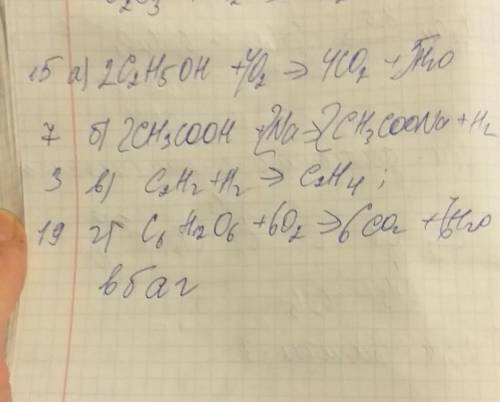 15 а) 2C2H5OH + 7O2 → 4CO2 + 5H2O
7 б) 2CH3COOH + 2Na → 2CH3COONa + H2
3 в) C2H2 + H2 → C2H4;
19 г) C6H12O6 + 6O2 → 6CO2 + 6H2O
вбаг